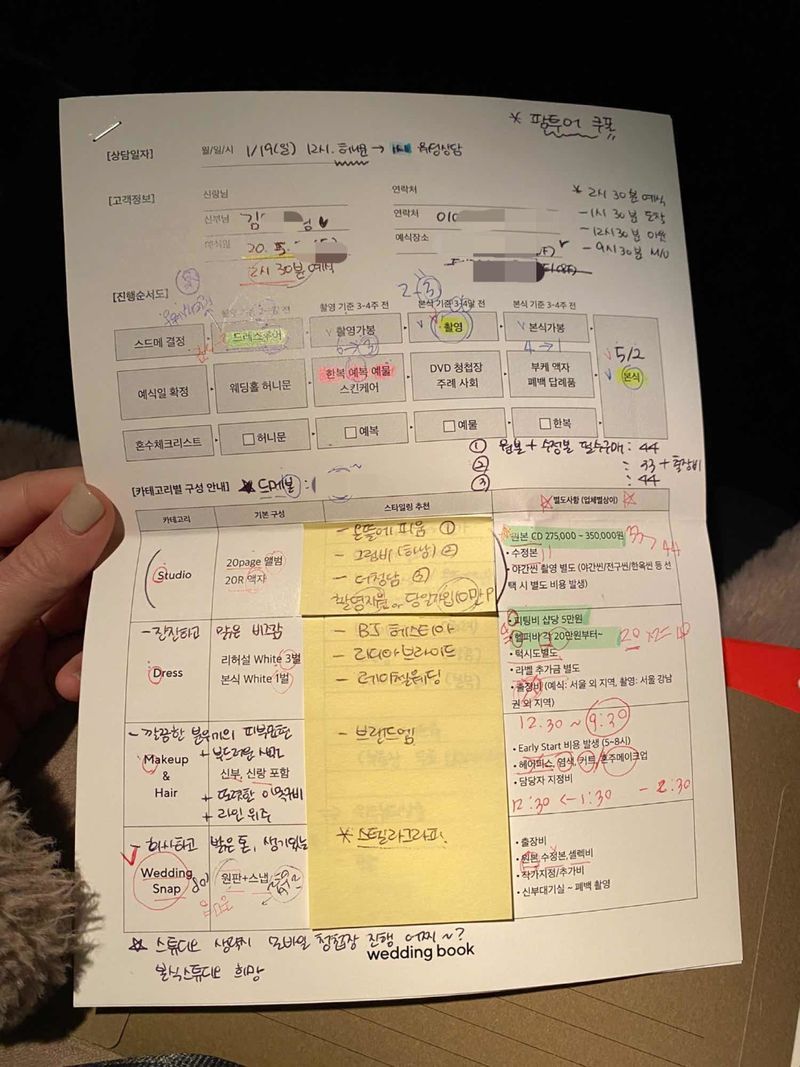 * 팜투어 쿠폰
[상담일자]
월/일/시 1/19(일) 12시. 허니문 →
[고객정보]
신랑님
연락처
신부님 김 님
연락처 010
예식일 20. 5.
예식장소
2시 30분 예식
* 2시 30분 예식
- 1시 30분 도착
- 12시 30분 아웃
- 9시 30분 M/U
[진행순서도]
2-3
촬영 기준 3-4주 전
본식 기준 3-4달 전
본식 기준 3-4주 전
스드메 결정
드레스투어
촬영가봉
촬영
본식가봉
4 → 1
5/2
본식
예식일 확정
웨딩홀 허니문
한복 예복 예물
스킨케어
DVD 청첩장
주례 사회
부케 액자
폐백 답례품
혼수체크리스트
허니문
예복
예물
한복
① 원본 + 수정본 필수구매 : 44
② : 33 + 출장비
③ : 44
[카테고리별 구성 안내]
카테고리
기본 구성
스타일링 추천
별도사항 (업체별상이)
Studio
20page 앨범
20R 액자
- 온뜰에 피움 ①
- 그럼비 (하남) ②
- 더청담 ③
촬영지원 or 당일가입 10만 P
원본 CD 275,000 ~ 350,000원
33 44
• 수정본
• 야간씬 촬영 별도 (야간씬/전구씬/한옥씬 등 선
택 시 별도 비용 발생)
Dress
- 잔잔하고 맑은 비즈감
리허설 White 3벌
본식 White 1벌
- BJ 헤스티아
- 리디아브라이드
- 레이첼웨딩
• 피팅비 샵당 5만원
• 헬퍼비 각 20만원부터~
20 x2=40
• 턱시도별도
• 라벨 추가금 별도
• 출장비 (예식: 서울 외 지역, 촬영: 서울 강남
권 외 지역)
Makeup
&
Hair
- 깔끔한 분위기의 피부표현
+ 부드러운 색조
신부, 신랑 포함
+ 또렷한 이목구비
+ 라인 위주
- 브랜드엠
12.30 ~ 9:30
• Early Start 비용 발생 (5~8시)
• 헤어피스, 염색, 커트, 혼주메이크업
• 담당자 지정비
12:30 <- 1:30 - 2:30
Wedding
Snap
- 화사하고 밝은 톤, 생기있는
원판+스냅
* 스텔라그라피.
• 출장비
• 원본, 수정본, 셀렉비
• 작가지정/추가비
• 신부대기실 ~ 폐백 촬영
☆ 스튜디오 생략시 모바일 청첩장 진행 어찌~?
본식스튜디오 희망
wedding book